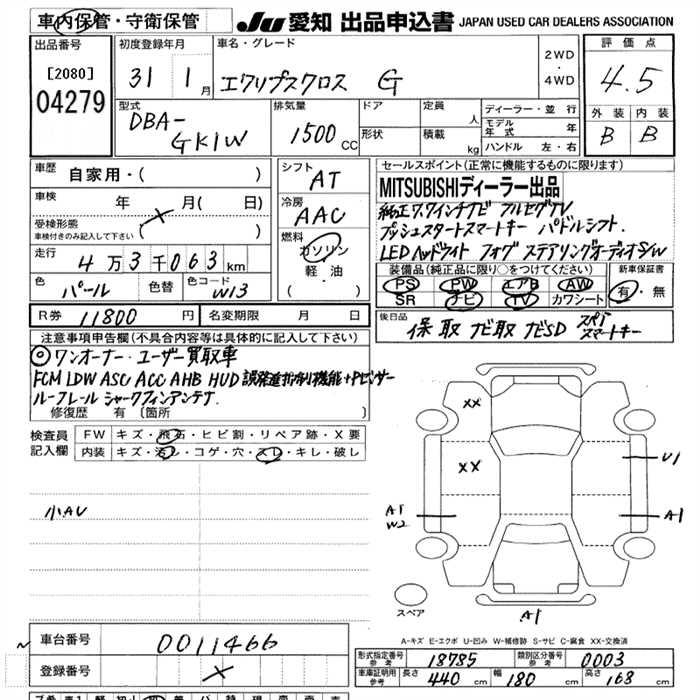 車内保管・守衛保管
JU 愛知 出品申込書 JAPAN USED CAR DEALERS ASSOCIATION
出品番号
[2080]
04279
初度登録年月
31 1月
車名・グレード
エクリプスクロス G
2WD
・
4WD
評価点
4.5
外装 内装
B B
型式
DBA-
GK1W
排気量
1500cc
ドア
形状
定員 人
積載 kg
ディーラー・並行
モデル年式 年
ハンドル 左・右
車歴
自家用・( )
車検 年 月( 日)
受検形態
車検付きのみ記入して下さい ( )
走行
4万3千063km
色 パール 色替 色コード W13
シフト
AT
冷房
AAC
燃料
ガソリン
・
軽・油
( )
セールスポイント(正常に機能するものに限ります)
MITSUBISHIディーラー出品
純正7.7インチナビ フルセグTV
プッシュスタートスマートキー パドルシフト.
LEDヘッドライト フォグ ステアリングオーディオS/W
装備品(純正品に限り○をつけてください)
PS PW エアB AW
SR ナビ TV カワシート
新車保証書
有・無
R券 11800円 名変期限 月 日
後日品
保 取 ナビ取 ナビSD スペア スマートキー
注意事項申告欄(不具合内容等は具体的に記入して下さい)
◎ワンオーナー・ユーザー買取車
FCM LDW ASC ACC AHB HUD 誤発進抑制機能+Pセンサー
ルーフレール シャークフィンアンテナ
修復歴 有 〔箇所
検査員
記入欄
FW キズ・飛石・ヒビ割・リペア跡・X要
内装 キズ・汚レ・コゲ・穴・スレ・キレ・破レ
小AU
XX
XX
U1
A1
W2
A1
A1
スペア
A-キズ E-エクボ U-凹み W-補修跡 S-サビ C-腐食 XX-交換済
車台番号 0011466
登録番号
形式指定番号 参考 18785 類別区分番号 参考 0003
車庫証明用 参考 長さ 440cm 幅 180cm 高さ 168cm